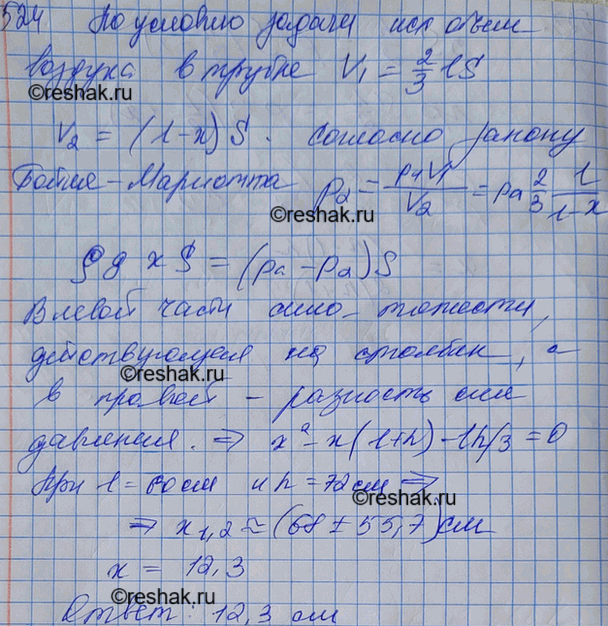 524 По условию задачи исх объем
воздуха в трубке V₁ = 2/3 lS
©reshak.ru
V₂ = (l-x) S. Согласно закону
Бойля-Мариотта p₂ = p₁V₁/V₂ = pa 2/3 l/(l-x)
©reshak.ru
ρ g x S = (pa - p₂) S
В левой части сила тяжести,
действующая на столбик, а
©reshak.ru
в правой - разность сил
давления. ⇒ x² - x(l+h) - lh/3 = 0
При l = 60 см и h = 72 см ⇒
©reshak.ru
⇒ x₁,₂ ≈ (68 ± 55,7) см
x = 12,3
©reshak.ru
Ответ: 12,3 см